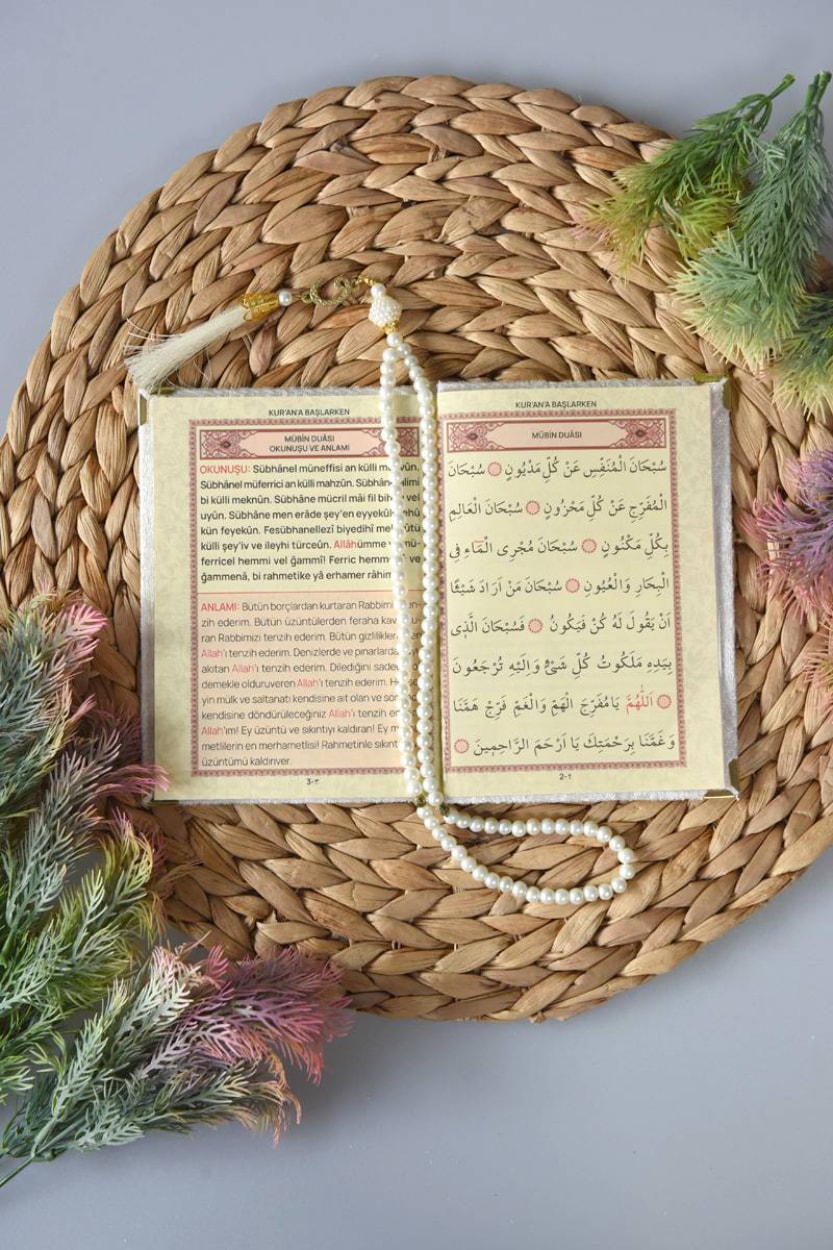 KUR'AN'A BAŞLARKEN
MÜBİN DUÂSI
OKUNUŞU VE ANLAMI
OKUNUŞU: Sübhânel müneffisi an külli
Sübhânel müferrici an külli mahzûn.
bi külli meknûn. Sübhâne mücril mâi fil
uyûn. Sübhâne men erâde şey'en
kün feyekûn. Fesübhanellezî biyedihî
külli şey'iv ve ileyhi türceûn. Allâhümme
ferricel hemmi vel ğammi! Ferric
ğammenâ, bi rahmetike yâ erhamer râhim
ANLAMI: Bütün borçlardan kurtaran Rabbimi
zih ederim. Bütün üzüntülerden feraha
ran Rabbimizi tenzih ederim. Bütün
Allah'ı tenzih ederim. Denizlerde ve
akıtan Allah'ı tenzih ederim. Dilediğini
demekle olduruveren Allah'ı tenzih ederim.
yin mülk ve saltanatı kendisine ait olan ve
kendisine döndürüleceğiniz Allah'ı tenzih
Allah'ım! Ey üzüntü ve sıkıntıyı kaldıran! Ey
metlilerin en merhametlisi! Rahmetinle
üzüntümü kaldırıver.
3-٣
KUR'AN'A BAŞLARKEN
MÜBİN DUÂSI
سُبْحَانَ الْمُنَفِّسِ عَنْ كُلِّ مَدْيُونٍ سُبْحَانَ
الْمُفَرِّجِ عَنْ كُلِّ مَحْزُونٍ سُبْحَانَ الْعَالِمِ
بِكُلِّ مَكْنُونٍ سُبْحَانَ مُجْرِى الْمَٓاءِ فِى
الْبِحَارِ وَالْعُيُونِ سُبْحَانَ مَنْ اَرَادَ شَيْئًا
اَنْ يَقُولَ لَهُ كُنْ فَيَكُونُ فَسُبْحَانَ الَّذِى
بِيَدِهِ مَلَكُوتُ كُلِّ شَىْءٍ وَاِلَيْهِ تُرْجَعُونَ
اَللّٰهُمَّ يَامُفَرِّجَ الْهَمِّ وَالْغَمِّ فَرِّجْ هَمَّنَا
وَغَمَّنَا بِرَحْمَتِكَ يَا اَرْحَمَ الرَّاحِمِينَ
2-٢